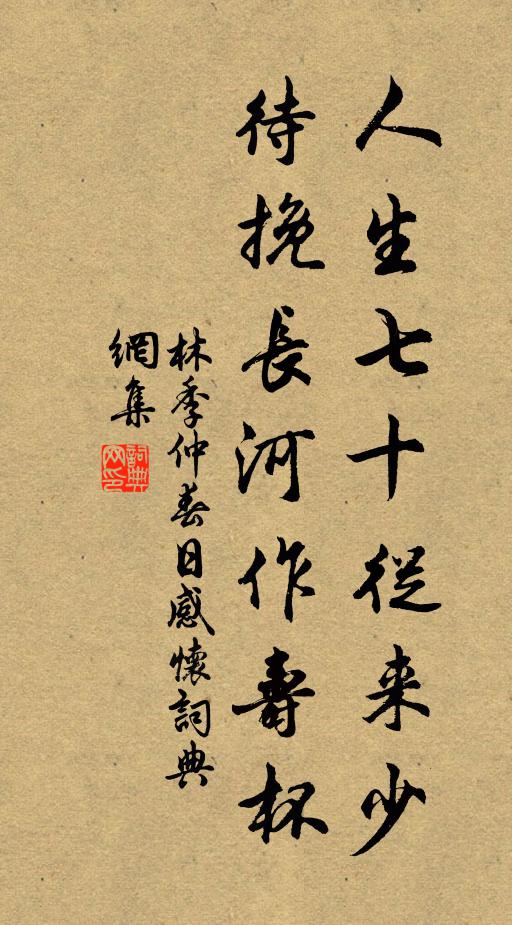 人生七十從来少
待挽長河作壽杯
林季仲春日感懷詞典
網集
詞典网印